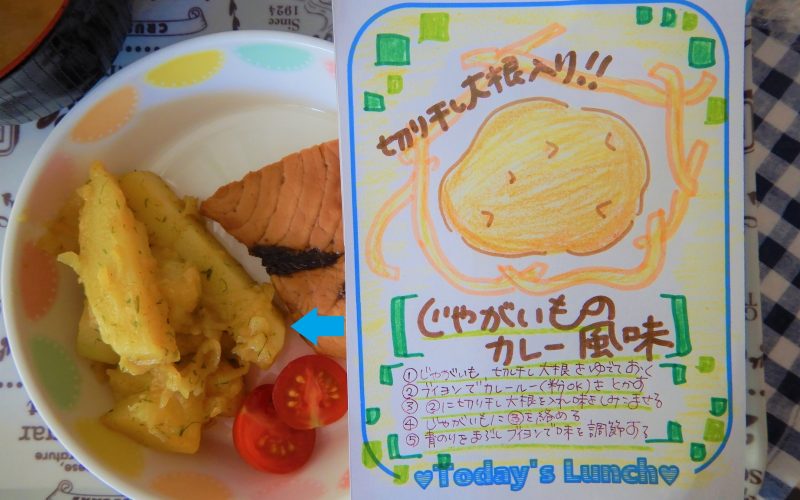 Since
1924
切り干し大根入り!!
じゃがいもの
カレー風味
① じゃがいも 切り干し大根をゆでておく
② ブイヨンでカレールー(粉OK)をとかす
③ ②に切り干し大根を入れ味をしみこませる
④ じゃがいもに③を絡める
⑤ 青のりをまぶしブイヨンで味を調節する
♥Today's Lunch♥